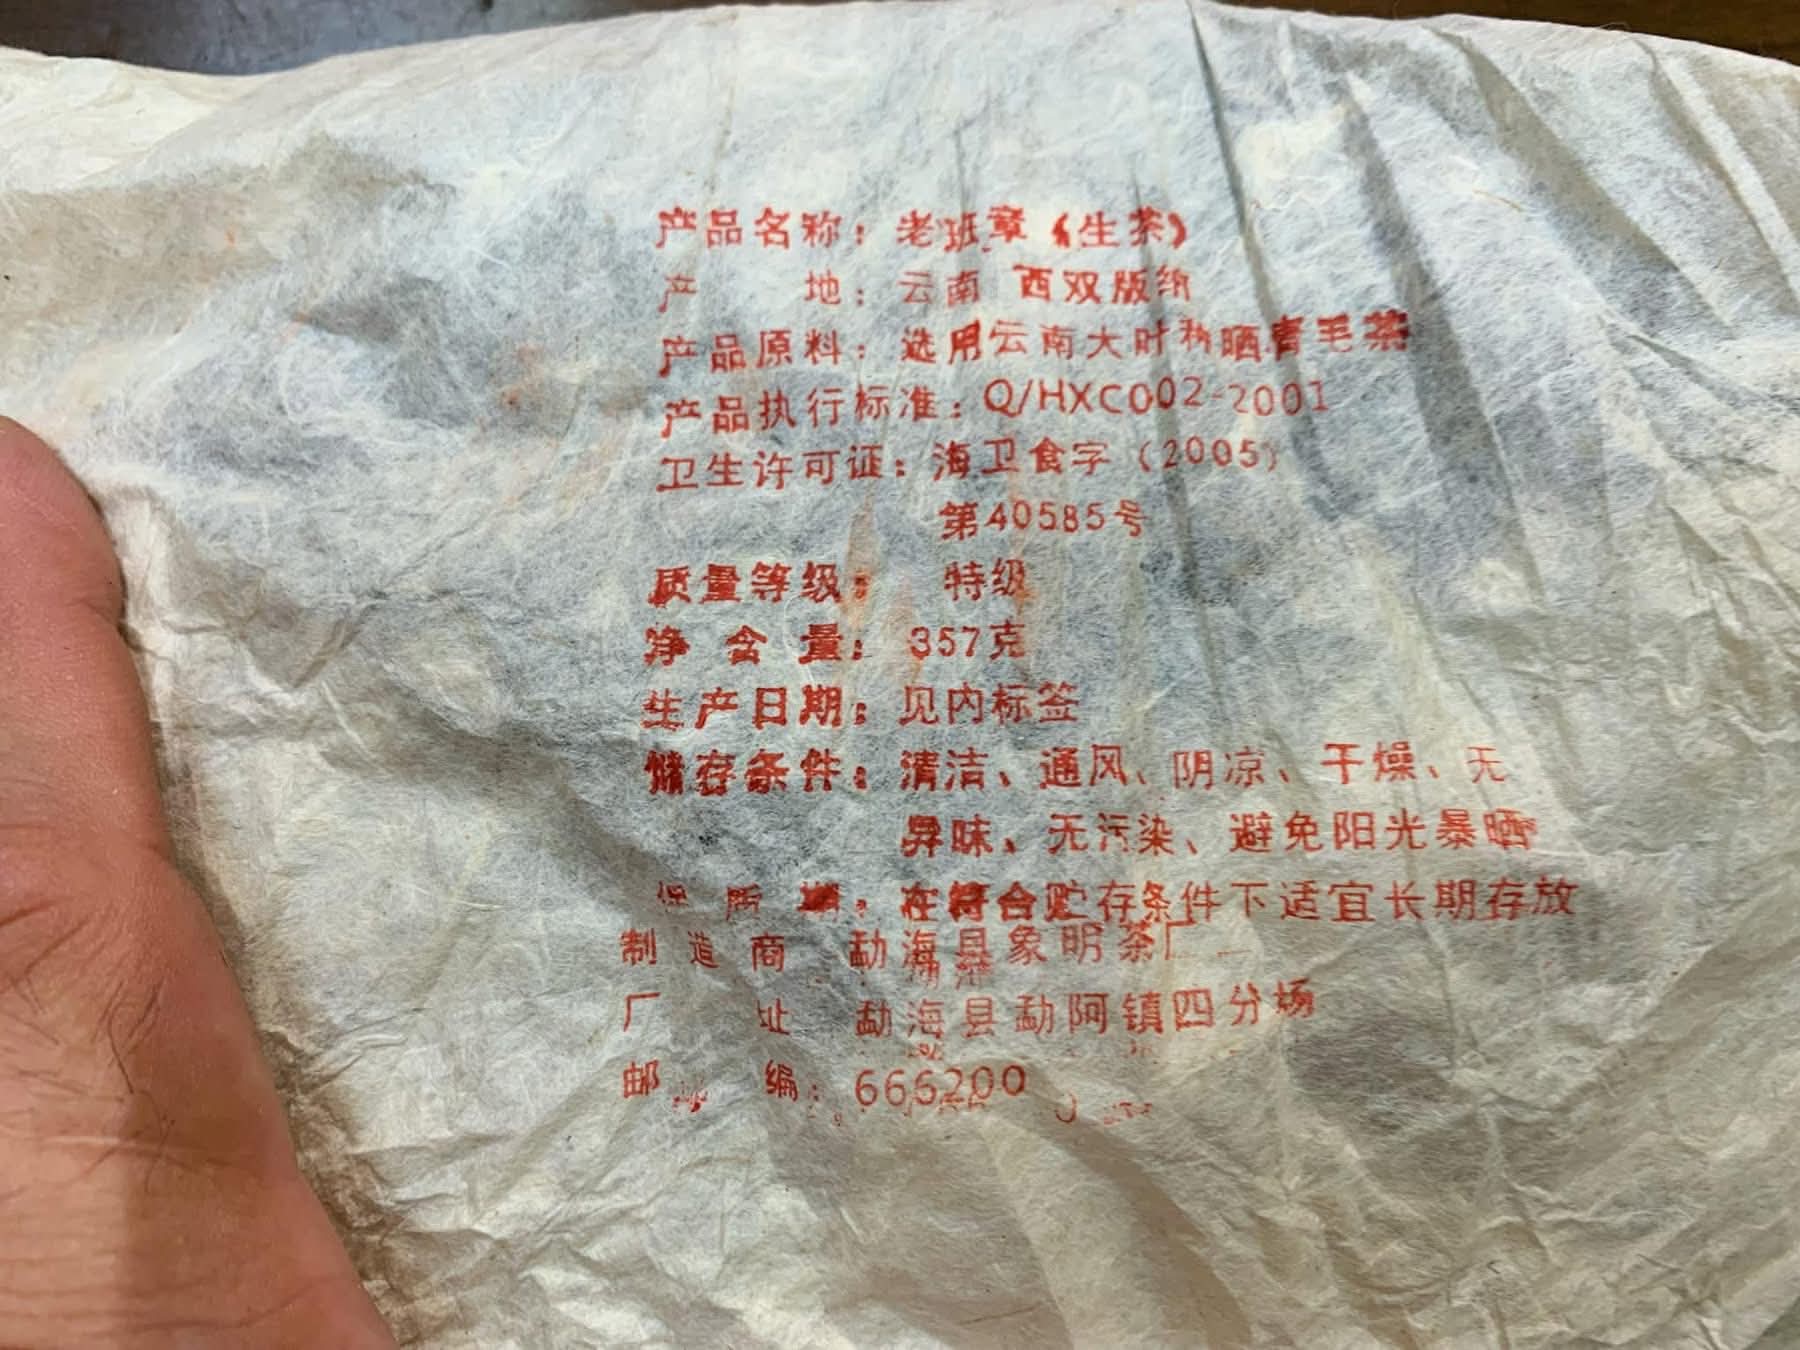 产品名称：老班章（生茶）
产 地：云南 西双版纳
产品原料：选用云南大叶种晒青毛茶
产品执行标准：Q/HXC002-2001
卫生许可证：海卫食字（2005）
第40585号
质量等级：特级
净含量：357克
生产日期：见内标签
储存条件：清洁、通风、阴凉、干燥、无
异味、无污染、避免阳光暴晒
保质期：在符合贮存条件下适宜长期存放
制造商 勐海县象明茶厂
厂 址 勐海县勐阿镇四分场
邮 编：666200